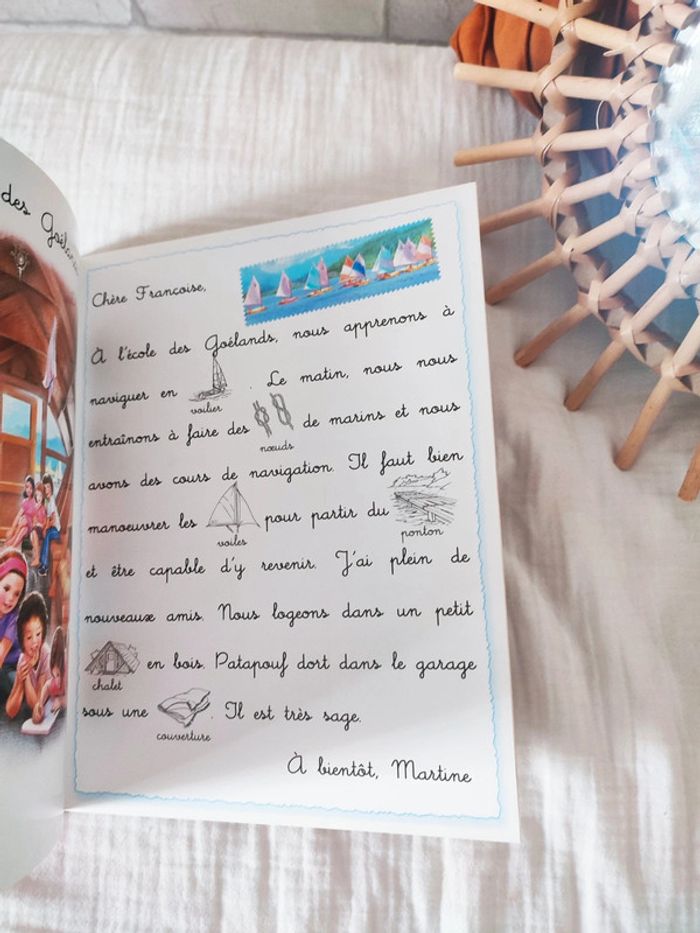 des Goélands
Chère Francoise,
À l'école des Goélands, nous apprenons à
naviguer en . Le matin, nous nous
voilier
entraînons à faire des de marins et nous
nœuds
avons des cours de navigation. Il faut bien
manoeuvrer les pour partir du
voiles ponton
et être capable d'y revenir. J'ai plein de
nouveaux amis. Nous logeons dans un petit
en bois. Patapouf dort dans le garage
chalet
sous une . Il est très sage.
couverture
À bientôt, Martine